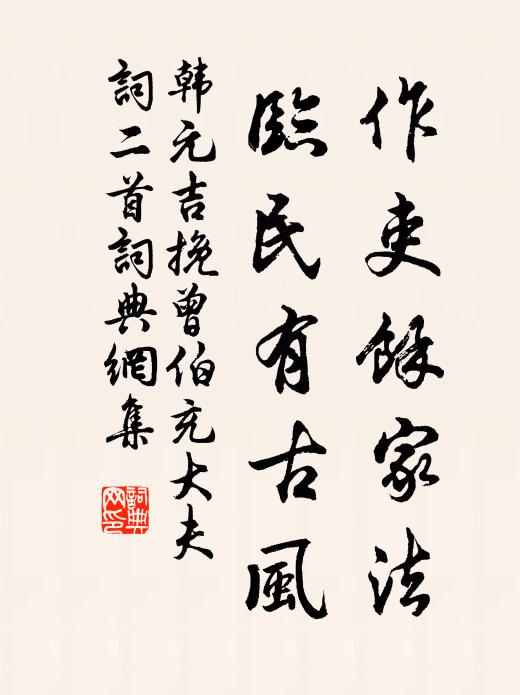 作吏餘家法
臨民有古風
韩元吉挽曾伯充大夫
詞二首詞典網集
詞典網印